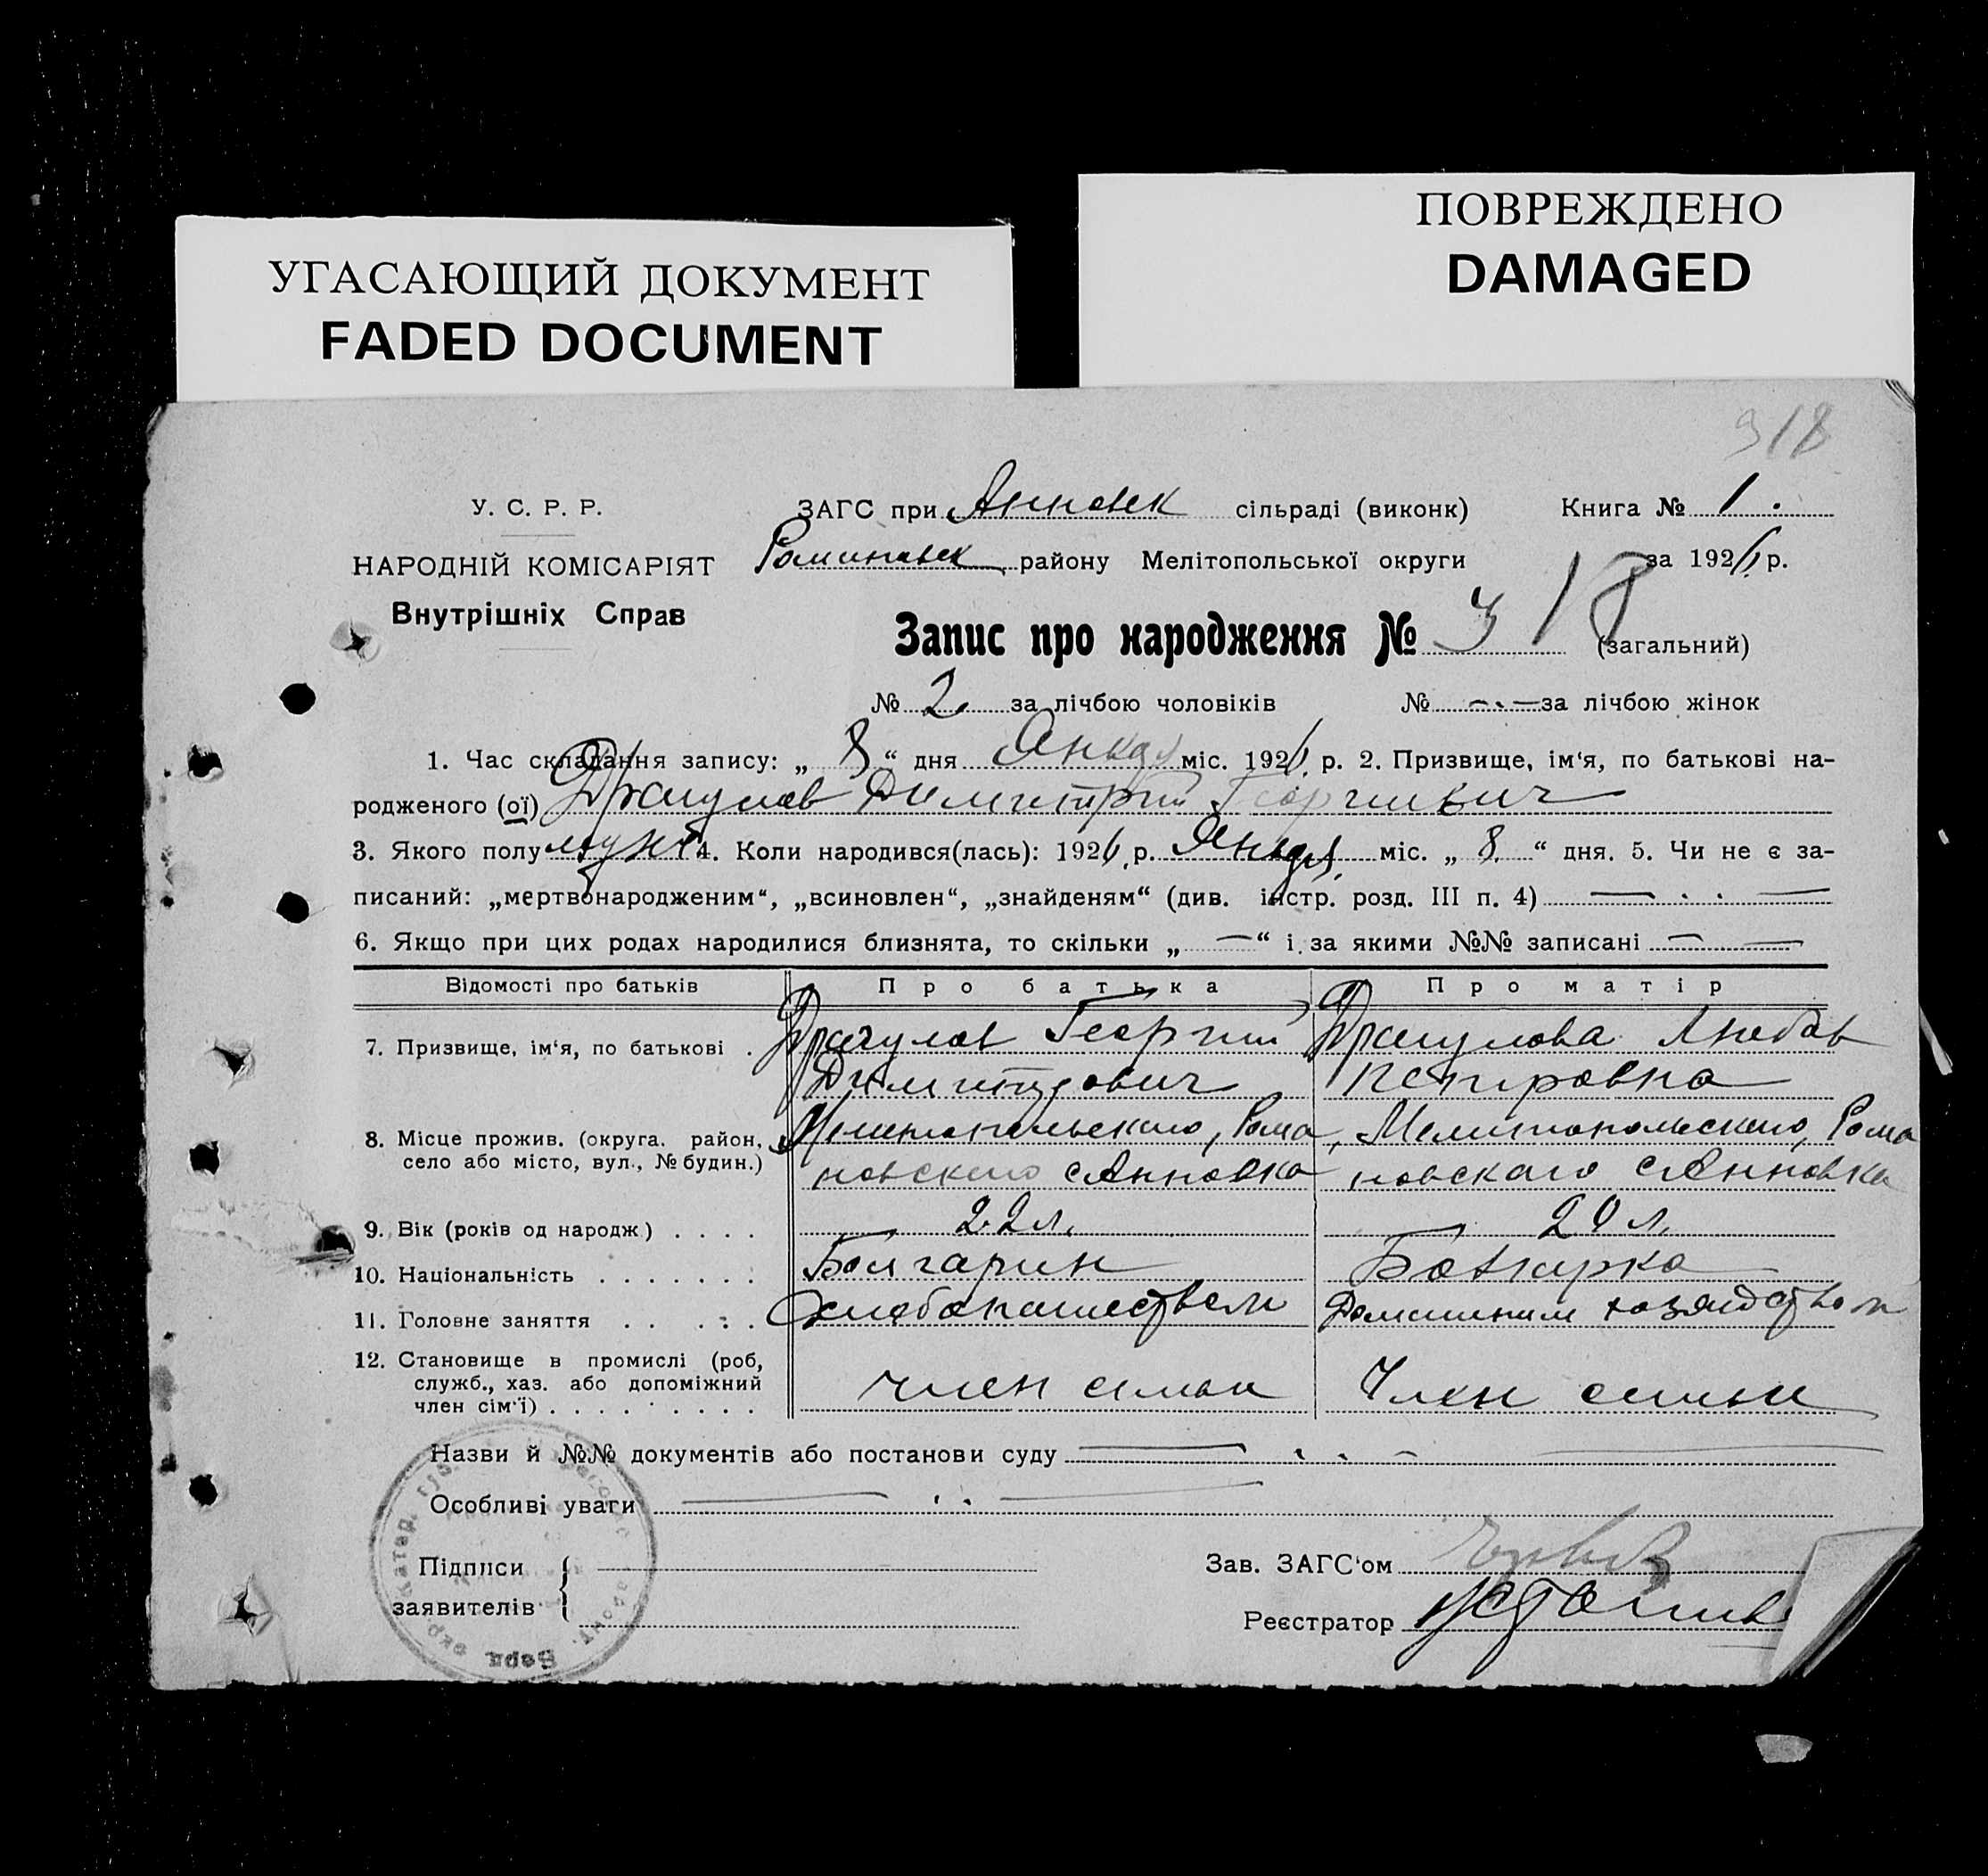 УГАСАЮЩИЙ ДОКУМЕНТ
FADED DOCUMENT
ПОВРЕЖДЕНО
DAMAGED
318
У. С. Р. Р.
НАРОДНІЙ КОМІСАРІЯТ
Внутрішніх Справ
ЗАГС при Анновск сільраді (виконк) Книга № 1.
Романовск району Мелітопольської округи за 1926 р.
Запис про народження № 318 (загальний)
№ 2. за лічбою чоловіків № — за лічбою жінок
1. Час складання запису: „ 8 “ дня Января міс. 1926 р. 2. Призвище, ім‘я, по батькові на-
родженого (ої) Драгулов Димитрий Георгиевич
3. Якого полу муж 4. Коли народився(лась): 1926 р. Января міс. „ 8. “ дня. 5. Чи не є за-
писаний: „мертвонародженим“, „всиновлен“, „знайденям“ (див. інстр. розд. III п. 4) —
6. Якщо при цих родах народилися близнята, то скільки „ — “ і за якими №№ записані —
Відомості про батьків Про батька Про матір
7. Призвище, ім‘я, по батькові . Драгулов Георгий Драгулова Любов
Димитрович Петровна
8. Місце прожив. (округа. район, Мелитопольского, Рома Мелитопольского, Рома
село або місто, вул., № будин.) новского с Анновка новскаго с Анновка
9. Вік (років од народж) . . . . 22 л. 20 л.
10. Національність . . . . . . . Болгарин Болгарка
11. Головне заняття . . . . . Хлебопашеством Домашним хозяйством
12. Становище в промислі (роб,
служб., хаз. або допоміжний член семьи Член семьи
член сім‘ї) . . . . . . . . .
Назви й №№ документів або постанови суду —
Особливі уваги —
Підписи
заявителів
Зав. ЗАГС‘ом
Реєстратор